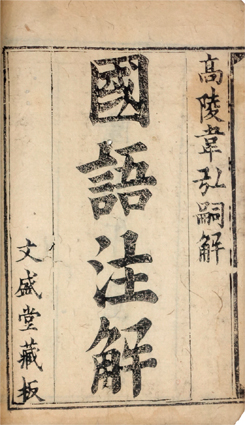 高陵韋弘嗣解
國語注解
文盛堂藏板